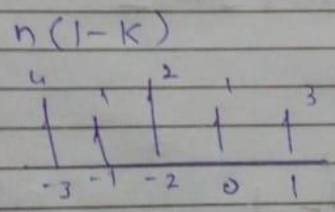 n(1-K)
4 1 2 1 3
-3 -1 -2 0 1